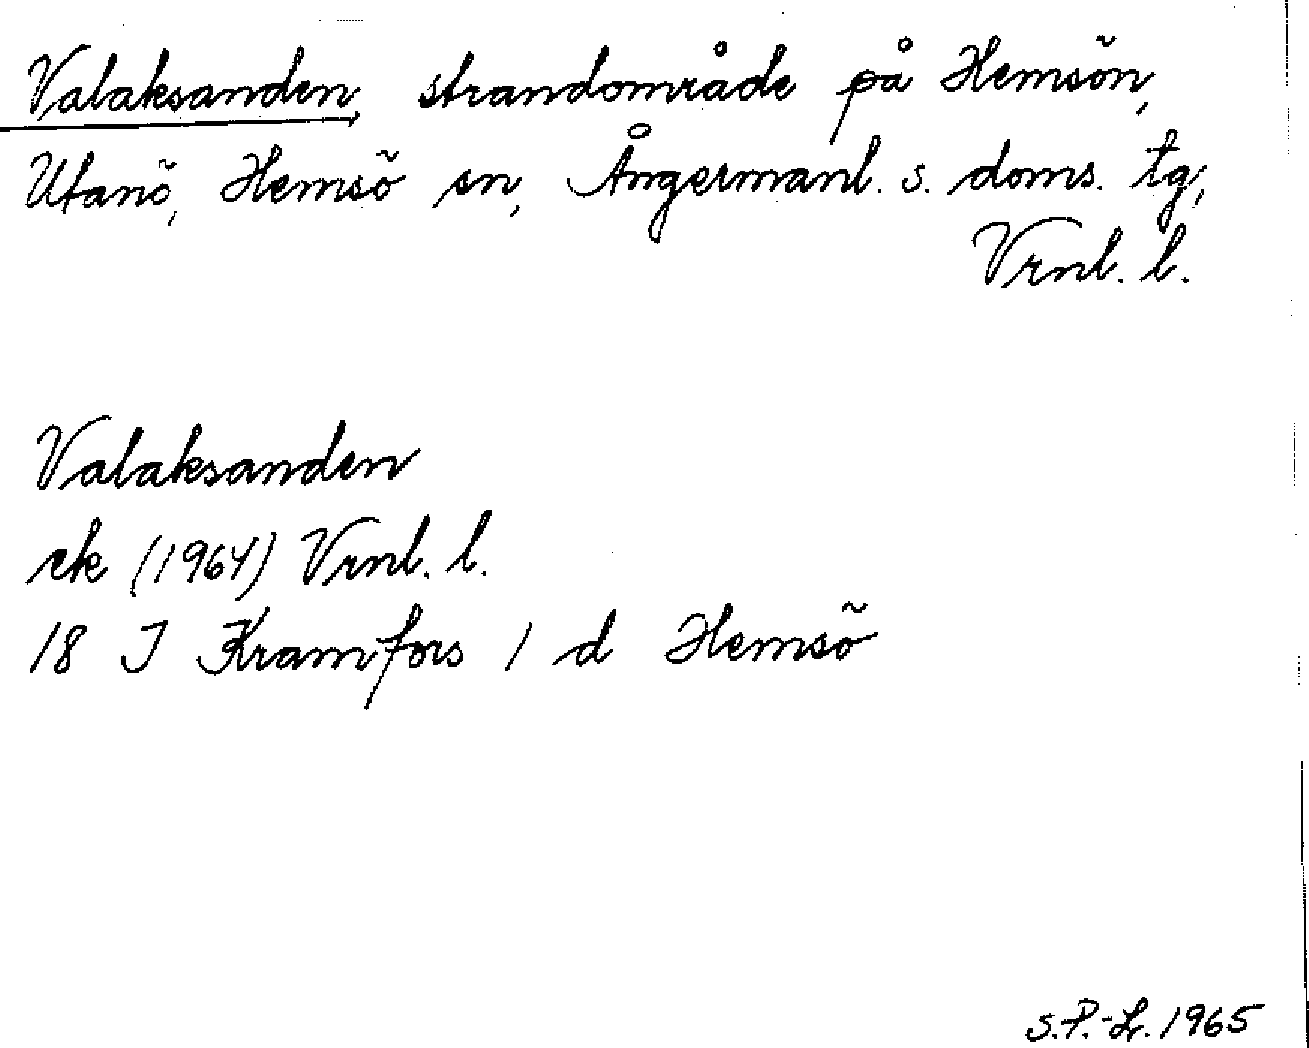 Valaksanden, strandområde på Hemsön,
Utanö, Hemsö sn, Ångermanl. s. doms. tg,
Vrnl. l.
Valaksanden
ek (1964) Vrnl. l.
18 J Kramfors 1 d Hemsö
S.P.-L. 1965